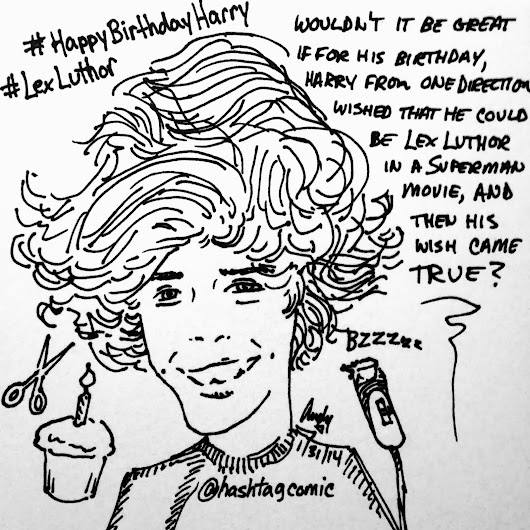 #HappyBirthdayHarry
#LexLuthor
WOULDN'T IT BE GREAT
IF FOR HIS BIRTHDAY,
HARRY FROM ONE DIRECTION
WISHED THAT HE COULD
BE LEX LUTHOR
IN A SUPERMAN
MOVIE, AND
THEN HIS
WISH CAME
TRUE?
BZZZzzz
Andy
1/31/14
@hashtagcomic